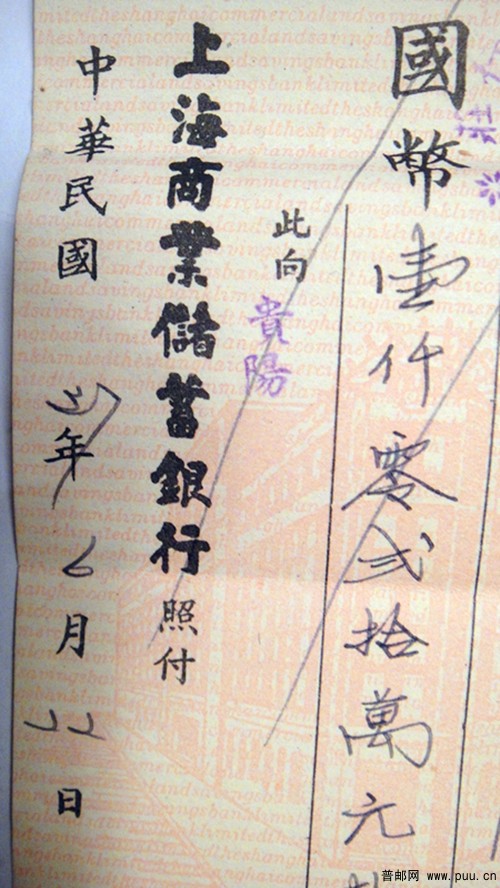 國幣壹仟零貳拾萬元
此向貴陽
上海商業儲蓄銀行照付
中華民國37年6月22日
普邮网 www.puu.cn